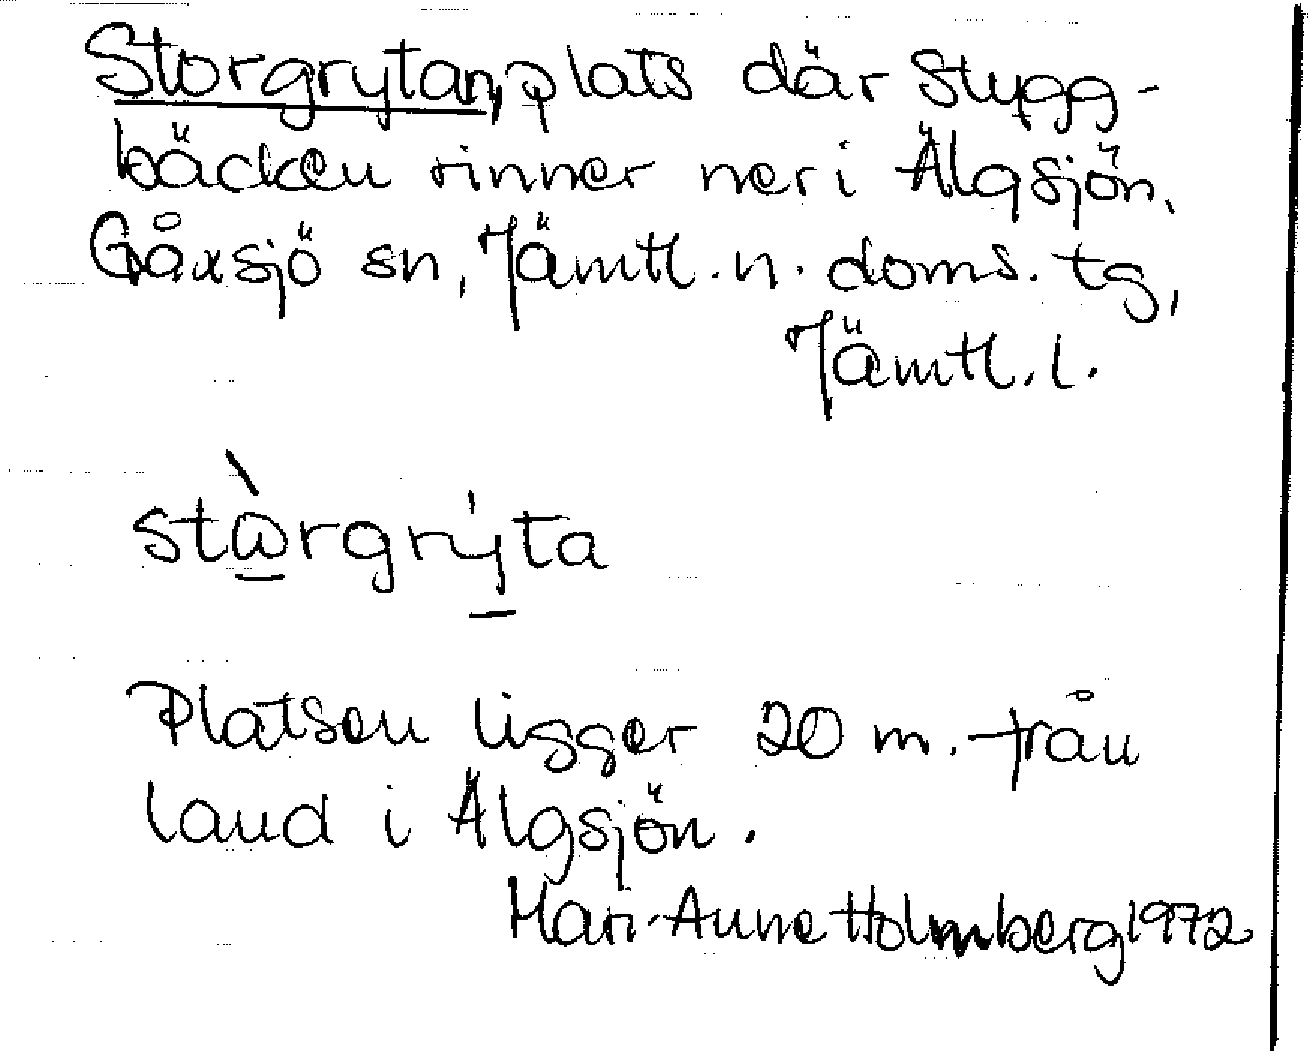 Storgrytan, plats där Stygg-
bäcken rinner ner i Älgsjön,
Gåxsjö sn, Jämtl. n. doms. tg,
Jämtl. l.
stὼ̱rgrý̱ta
Platsen ligger 20 m. från
land i Älgsjön.
Mari-Anne Holmberg 1972